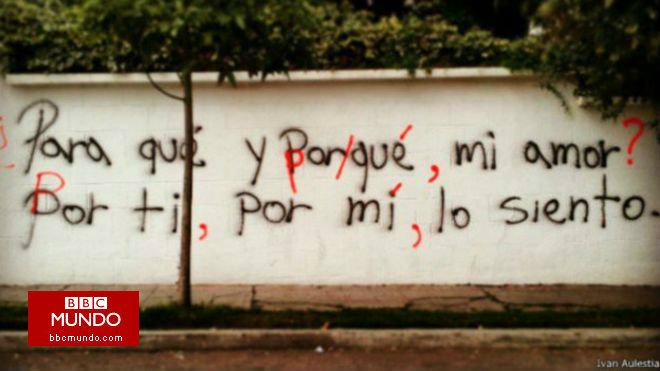 ¿Para qué y por/qué, mi amor?
Por ti, por mí, lo siento.
BBC
MUNDO
bbcmundo.com
Ivan Aulestia